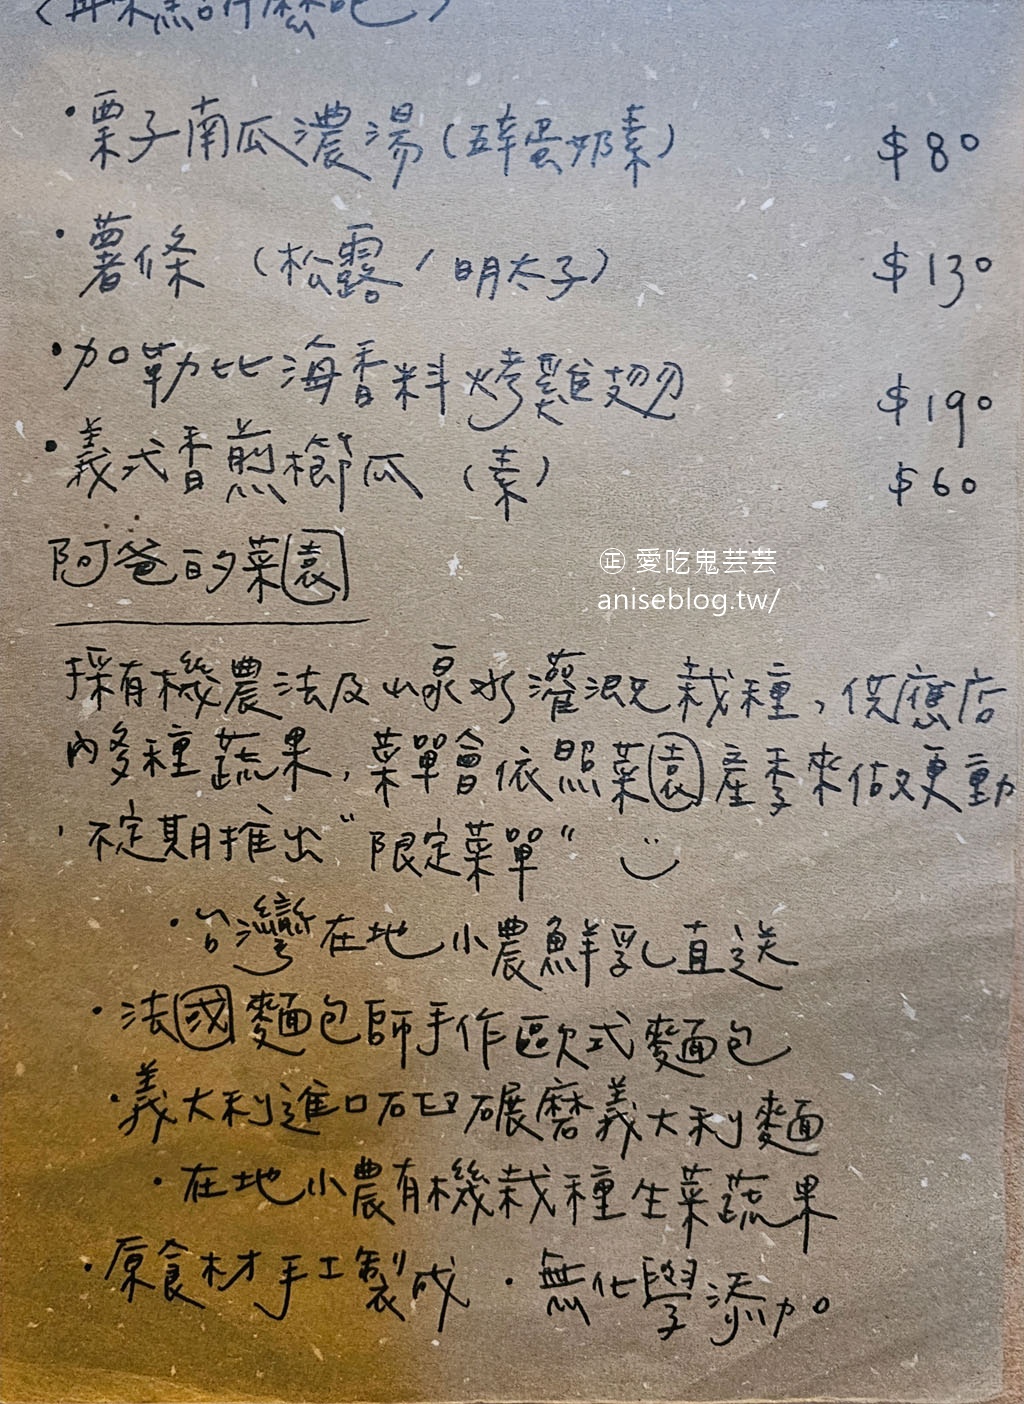 (再來點什麼吧)
•栗子南瓜濃湯(五辛蛋奶素) $80
•薯條 (松露/明太子) $130
•加勒比海香料烤雞翅 $190
•義式香煎櫛瓜 (素) $60
阿爸的菜園
㊣ 愛吃鬼芸芸
aniseblog.tw/
採有機農法及山泉水灌溉栽種,供應店
內多種蔬果,菜單會依照菜園產季來做更動
,不定期推出"限定菜單"
•台灣在地小農鮮乳直送
•法國麵包師手作歐式麵包
•義大利進口石臼碾磨義大利麵
•在地小農有機栽種生菜蔬果
•原食材手工製成 •無化學添加